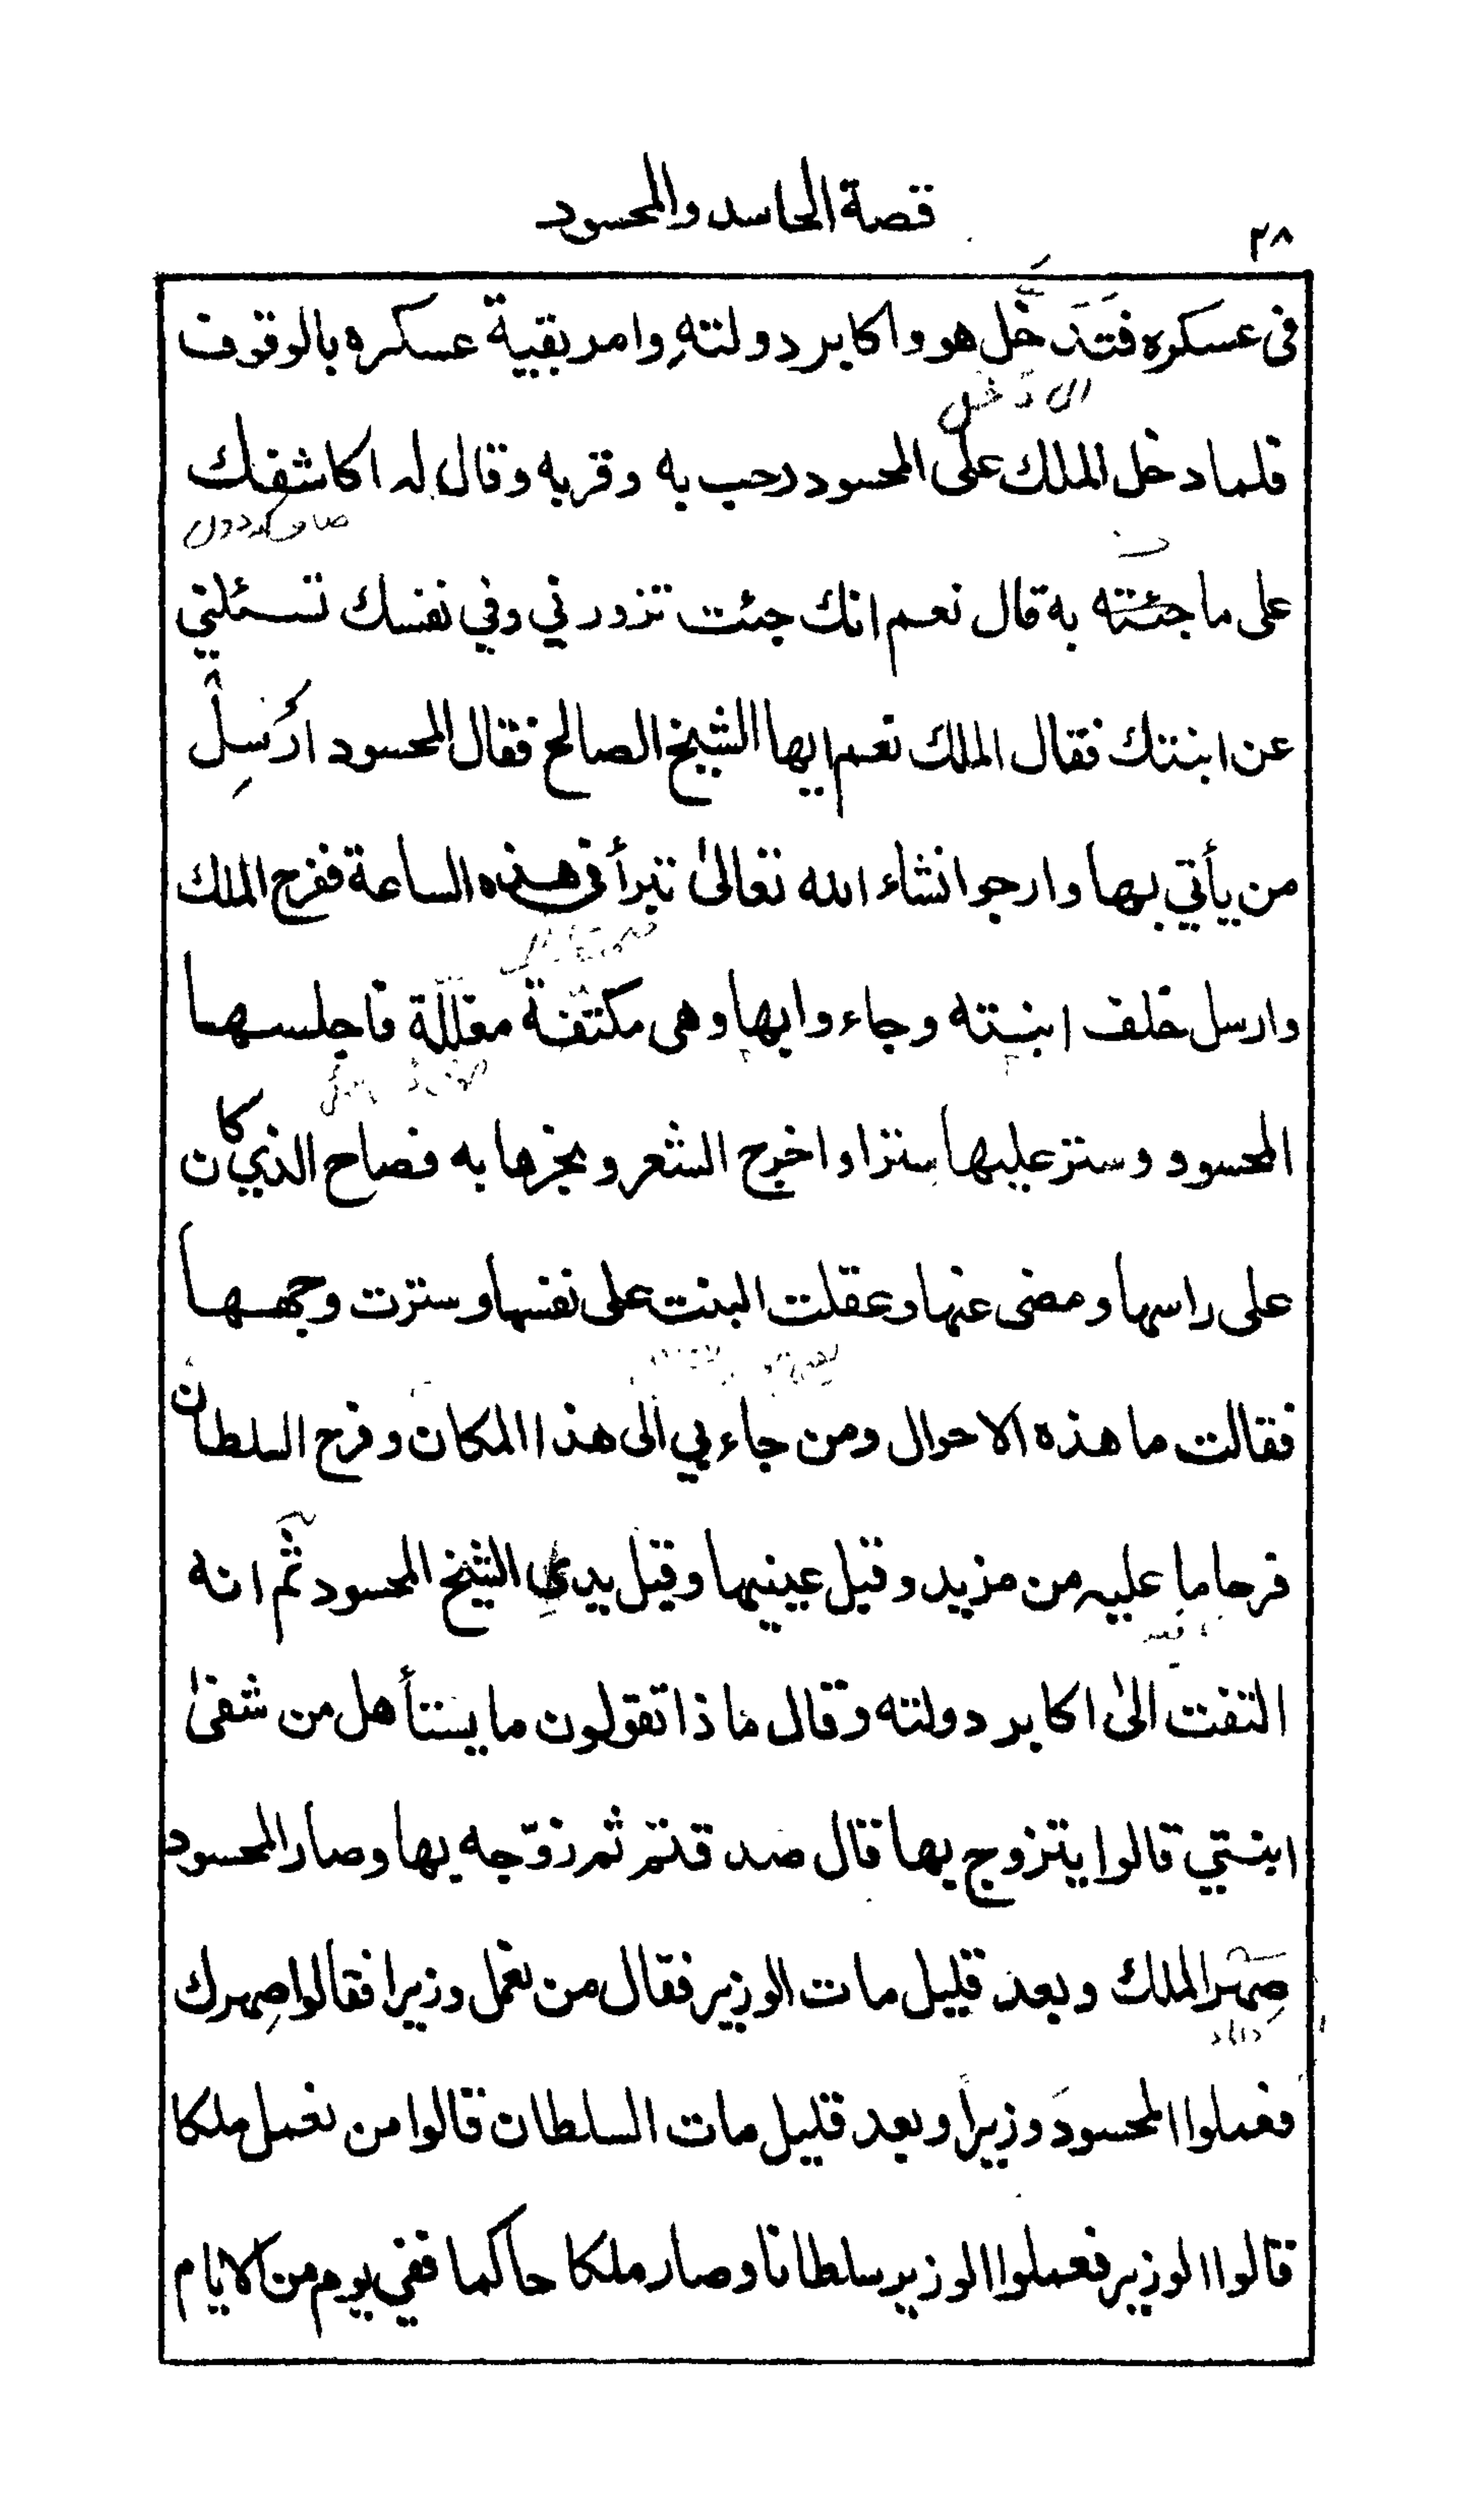 قصة الحاسد والمحسود
٢٨
فى عسكره فتدخل هو واكابر دولته وامر بقية عسكره بالوقوف
فلما دخل الملك على المحسود رحب به وقربه وقال له اكاشفك
على ما جئته به قال نعم انك جئت تزورني وفي نفسك تسئلني
عن ابنتك فقال الملك نعم ايها الشيخ الصالح فقال المحسود ارسل
من يأتي بها وارجو انشاء الله تعالى تبرأ فى هذه الساعة ففرح الملك
وارسل خلف ابنته وجاءوا بها وهى مكتفة مغللة فاجلسها
المحسود وستر عليها سترا واخرج الشعر وبخرها به فصاح الذي كان
على راسها ومضى عنها وعقلت البنت على نفسها وسترت وجهها
فقالت ما هذه الاحوال ومن جاء بي الى هذا المكان وفرح السلطان
فرحا ما عليه من مزيد وقبل عينيها وقبل يدي الشيخ المحسود ثم انه
التفت الى اكابر دولته وقال ماذا تقولون ما يستأهل من شفى
ابنتي قالوا يتزوج بها قال صدقتم ثم زوّجه بها وصار المحسود
صهر الملك وبعد قليل مات الوزير فقال من نعمل وزيرا فقالوا صهرك
فعملوا المحسود وزيرا وبعد قليل مات السلطان قالوا من نعمل ملكا
قالوا الوزير فعملوا الوزير سلطانا وصار ملكا حاكما ففي يوم من الايام